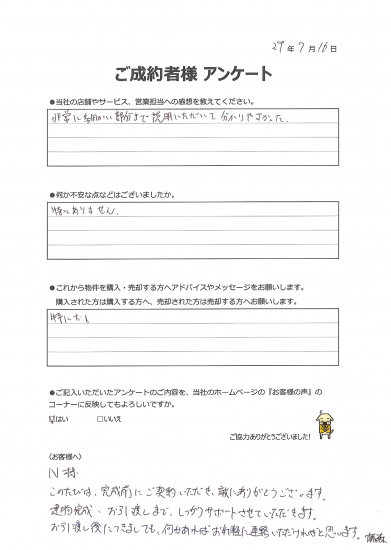 29年7月16日
ご成約者様 アンケート
●当社の店舗やサービス、営業担当への感想を教えてください。
非常に細かい部分まで説明いただいて分かりやすかった。
●何か不安な点などはございましたか。
特にありません。
●これから物件を購入・売却する方へアドバイスやメッセージをお願いします。
購入された方は購入する方へ、売却された方は売却する方へお願いします。
特になし
●ご記入いただいたアンケートのご内容を、当社のホームページの『お客様の声』の
コーナーに反映してもよろしいですか。
☑はい □いいえ
ご協力ありがとうございました!
〈お客様へ〉
N様
このたびは、完成前にご契約いただき、誠にありがとうございます。
建物完成・お引渡しまで、しっかりサポートさせていただきます。
お引渡し後につきましても、何かあればお気軽に連絡いただければと思います。